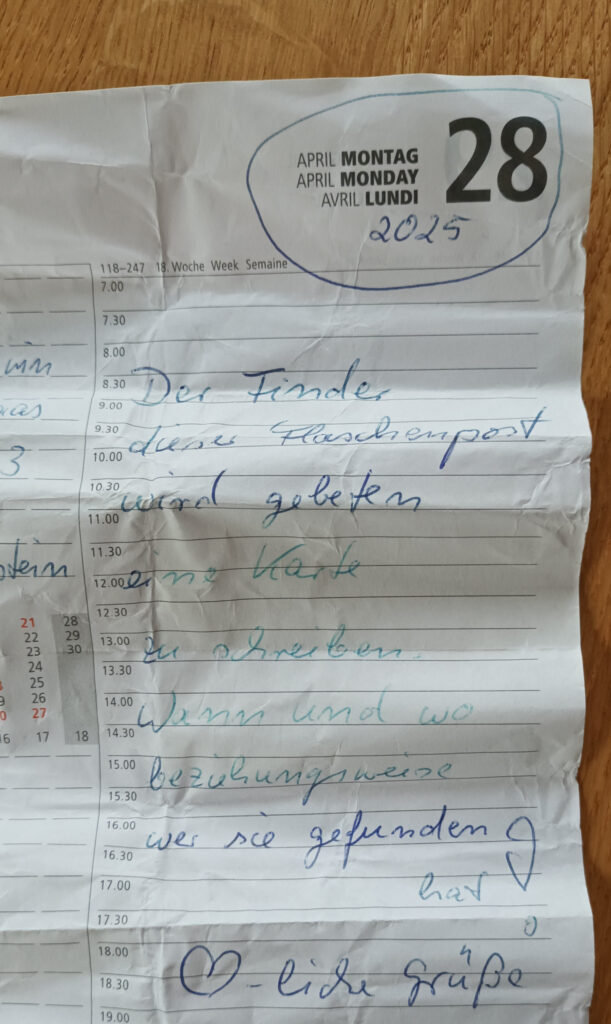 APRIL MONTAG 28
APRIL MONDAY
AVRIL LUNDI
2025
118–247 18. Woche Week Semaine
7.00
7.30
8.00
8.30 Der Finder
9.00
9.30 dieser Flaschenpost
10.00
10.30 wird gebeten
11.00
11.30 eine Karte
12.00
12.30
13.00 zu schreiben.
13.30
14.00 Wann und wo
14.30
15.00 beziehungsweise
15.30
16.00 wer sie gefunden
16.30
17.00 hat !
17.30
18.00
18.30 ♡-liche Grüße
19.00
3
tein
21 28
22 29
23 30
24
25
26
27
17 18